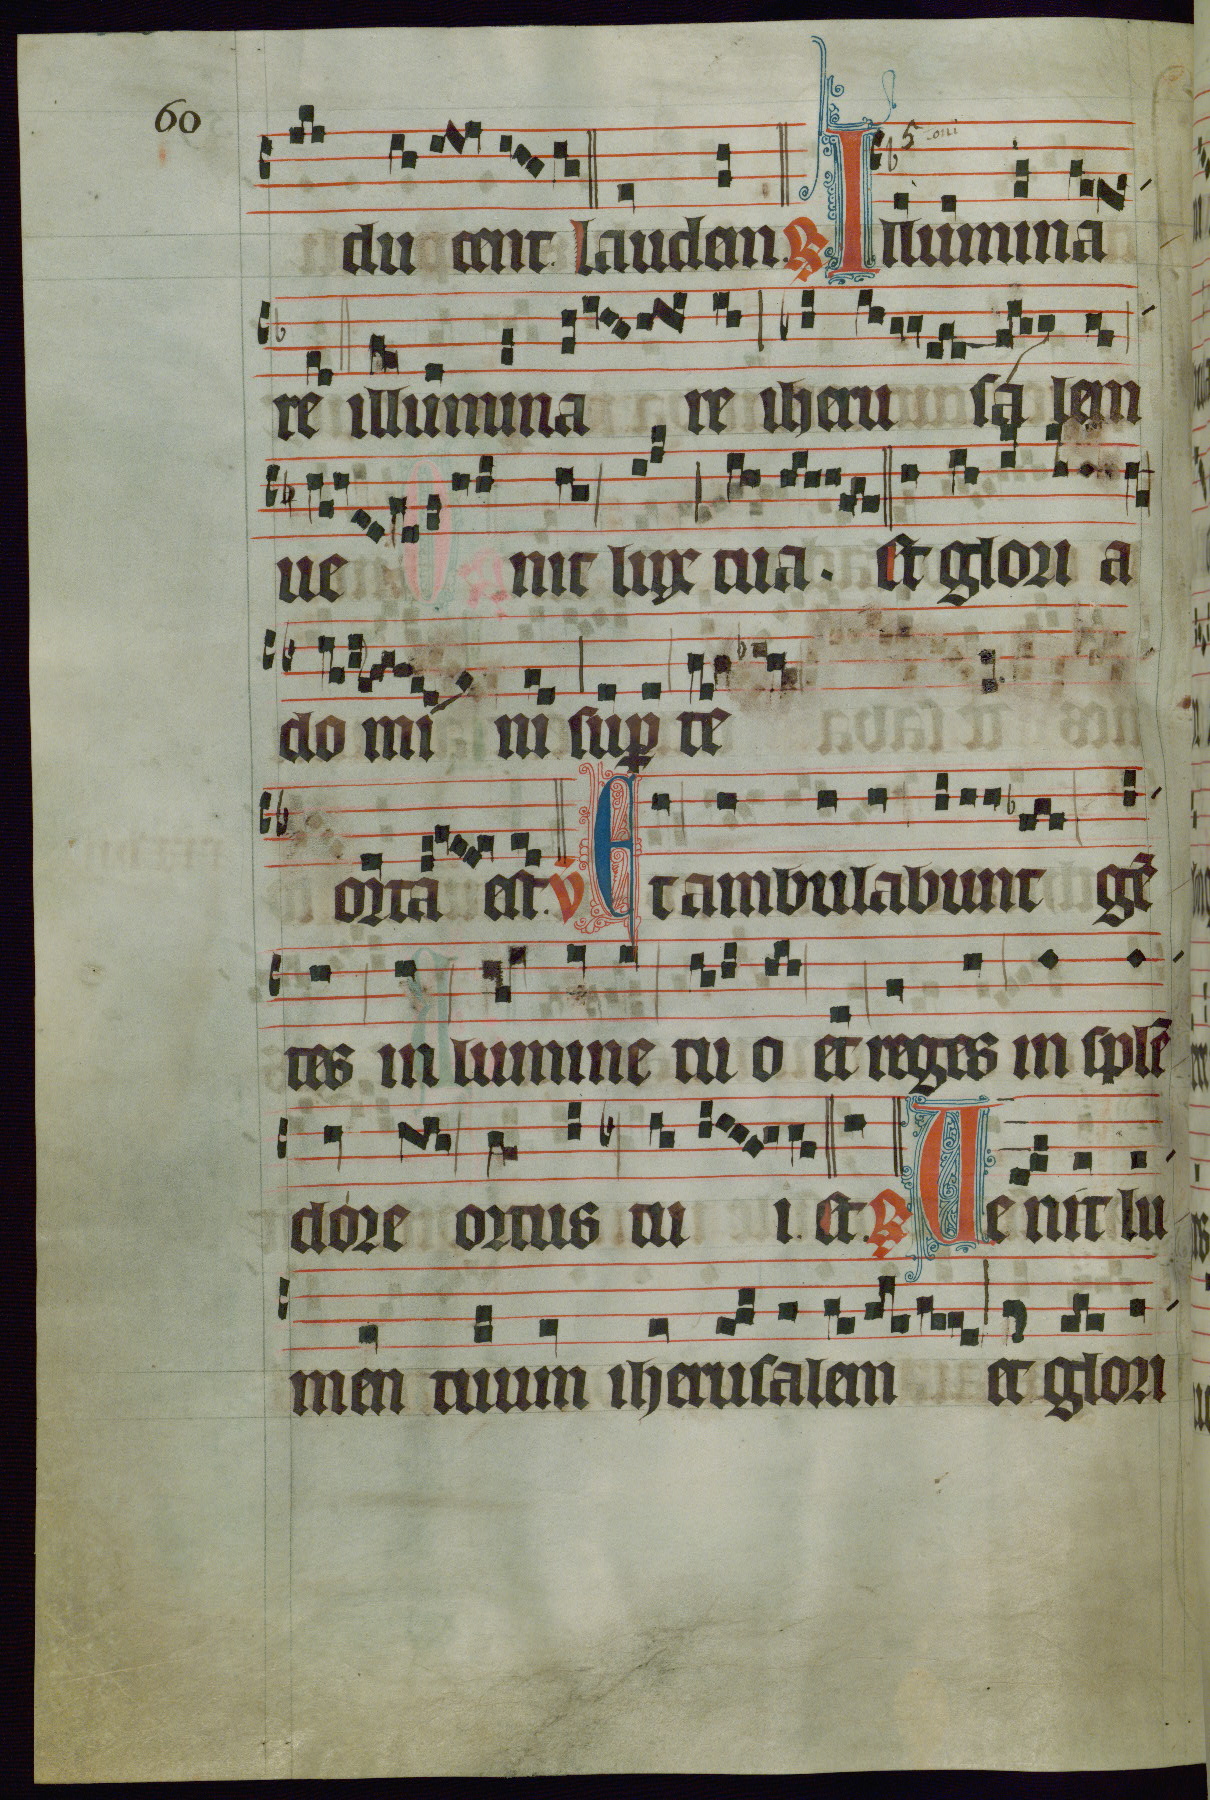 60
5 toni
du cent laudem. R Illumina
re illumina re iheru sa lem
ue nit lux tua. Et glori a
do mi ni sup te
orta est. V Et ambulabunt gē
tes in lumine tu o et reges in splē
dore ortus tu i. Et. R Ue nit lu
men tuum iherusalem et glori